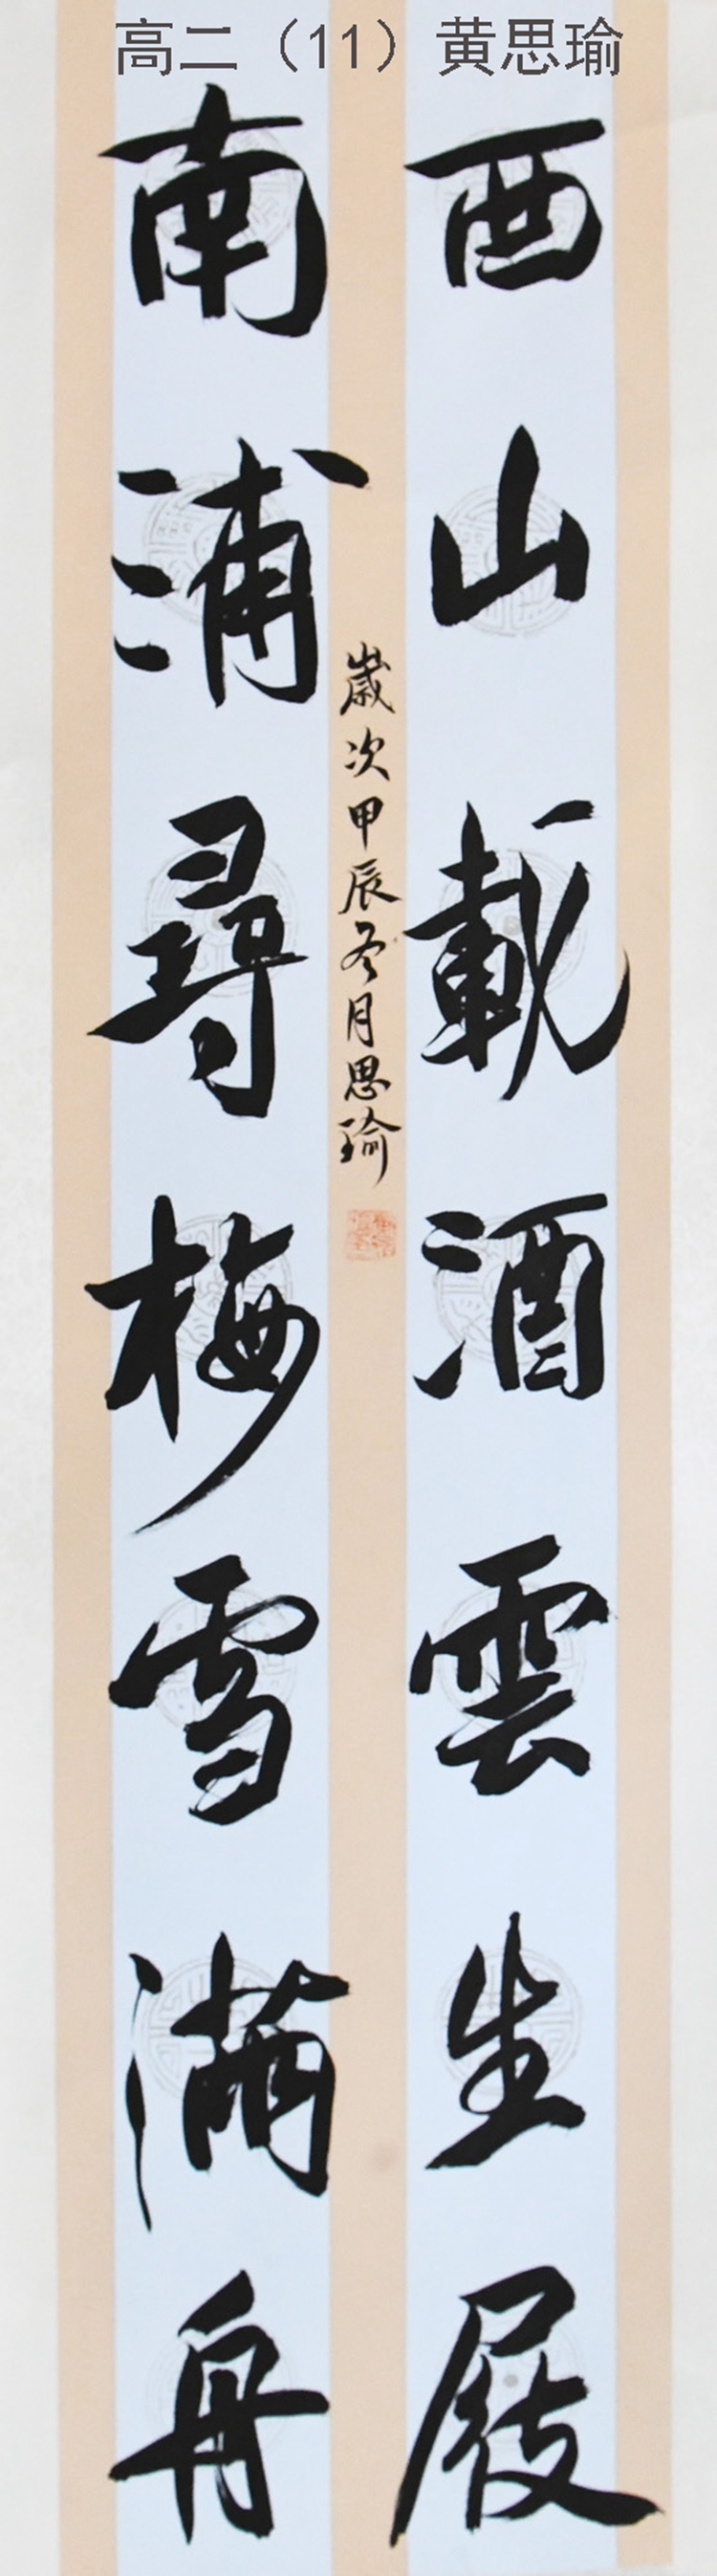 高二（11）黄思瑜
西山載酒雲生屐
南浦尋梅雪滿舟
歲次甲辰冬月思瑜